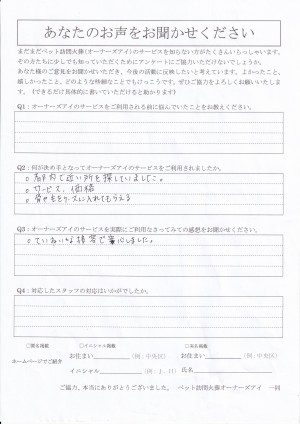 あなたのお声をお聞かせください
まだまだペット訪問火葬(オーナーズアイ)のサービスを知らない方がたくさんいらっしゃいます。
その方たちに少しでも知っていただくためにアンケートにご協力いただけないでしょうか。
あなた様のご意見をお聞かせいただき、今後の活動に反映したいと考えています。よかったこと、
嬉しかったこと、どのような些細なことでもけっこうです。ぜひご協力をよろしくお願いいたします。
(できるだけ具体的に書いていただけると助かります)
Q1:オーナーズアイのサービスをご利用される前に悩んでいたことをお教えください。
Q2:何が決め手となってオーナーズアイのサービスをご利用されましたか。
○都内で近い所を探していました。
○サービス、価格
Q3:オーナーズアイのサービスを実際にご利用なさってみての感想をお聞かせください。
○ていねいな接客で安心しました。
Q4:対応したスタッフの対応はいかがでしたか。
□匿名掲載 □イニシャル掲載 □実名掲載
ホームページでご紹介
お住まい (例:中央区) お住まい (例:中央区)
イニシャル (例:J.H) 氏名
ご協力、本当にありがとうございました。 ペット訪問火葬オーナーズアイ 一同